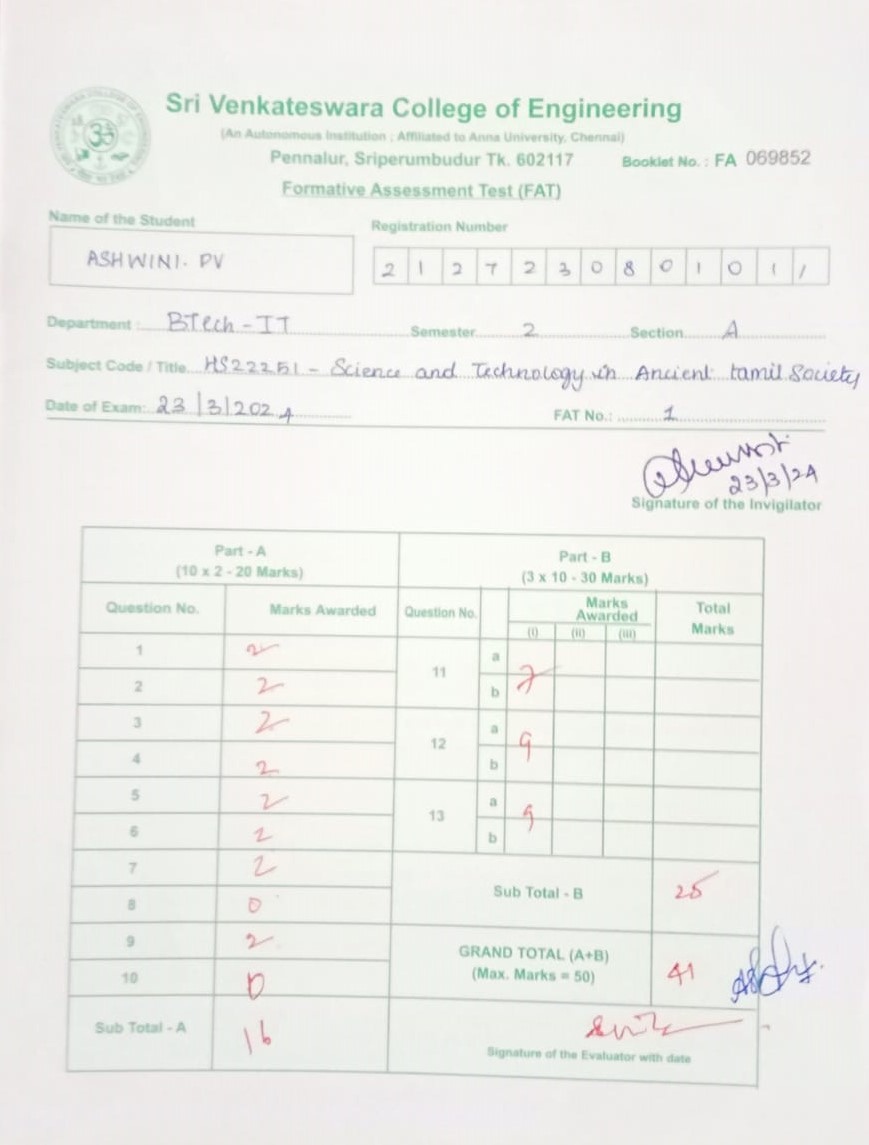 Sri Venkateswara College of Engineering
(An Autonomous Institution ; Affiliated to Anna University, Chennai)
Pennalur, Sriperumbudur Tk. 602117 Booklet No. : FA 069852
Formative Assessment Test (FAT)
Name of the Student Registration Number
ASHWINI. PV 2 1 2 7 2 3 0 8 0 1 0 1 /
Department : BTech - IT Semester 2 Section A
Subject Code / Title HS22251 - Science and Technology in Ancient tamil Society
Date of Exam: 23/3/2024 FAT No.: 1
23/3/24
Signature of the Invigilator
Part - A Part - B
(10 x 2 - 20 Marks) (3 x 10 - 30 Marks)
Question No. Marks Awarded Question No. Marks Awarded Total Marks
(i) (ii) (iii)
1 2
11 a
2 2
b 7
3 2
12 a 9
4 2
b
5 2
13 a 9
6 2
b
7 2
8 0
Sub Total - B 25
9 2
GRAND TOTAL (A+B)
(Max. Marks = 50) 41
10 0
Sub Total - A 16
Signature of the Evaluator with date